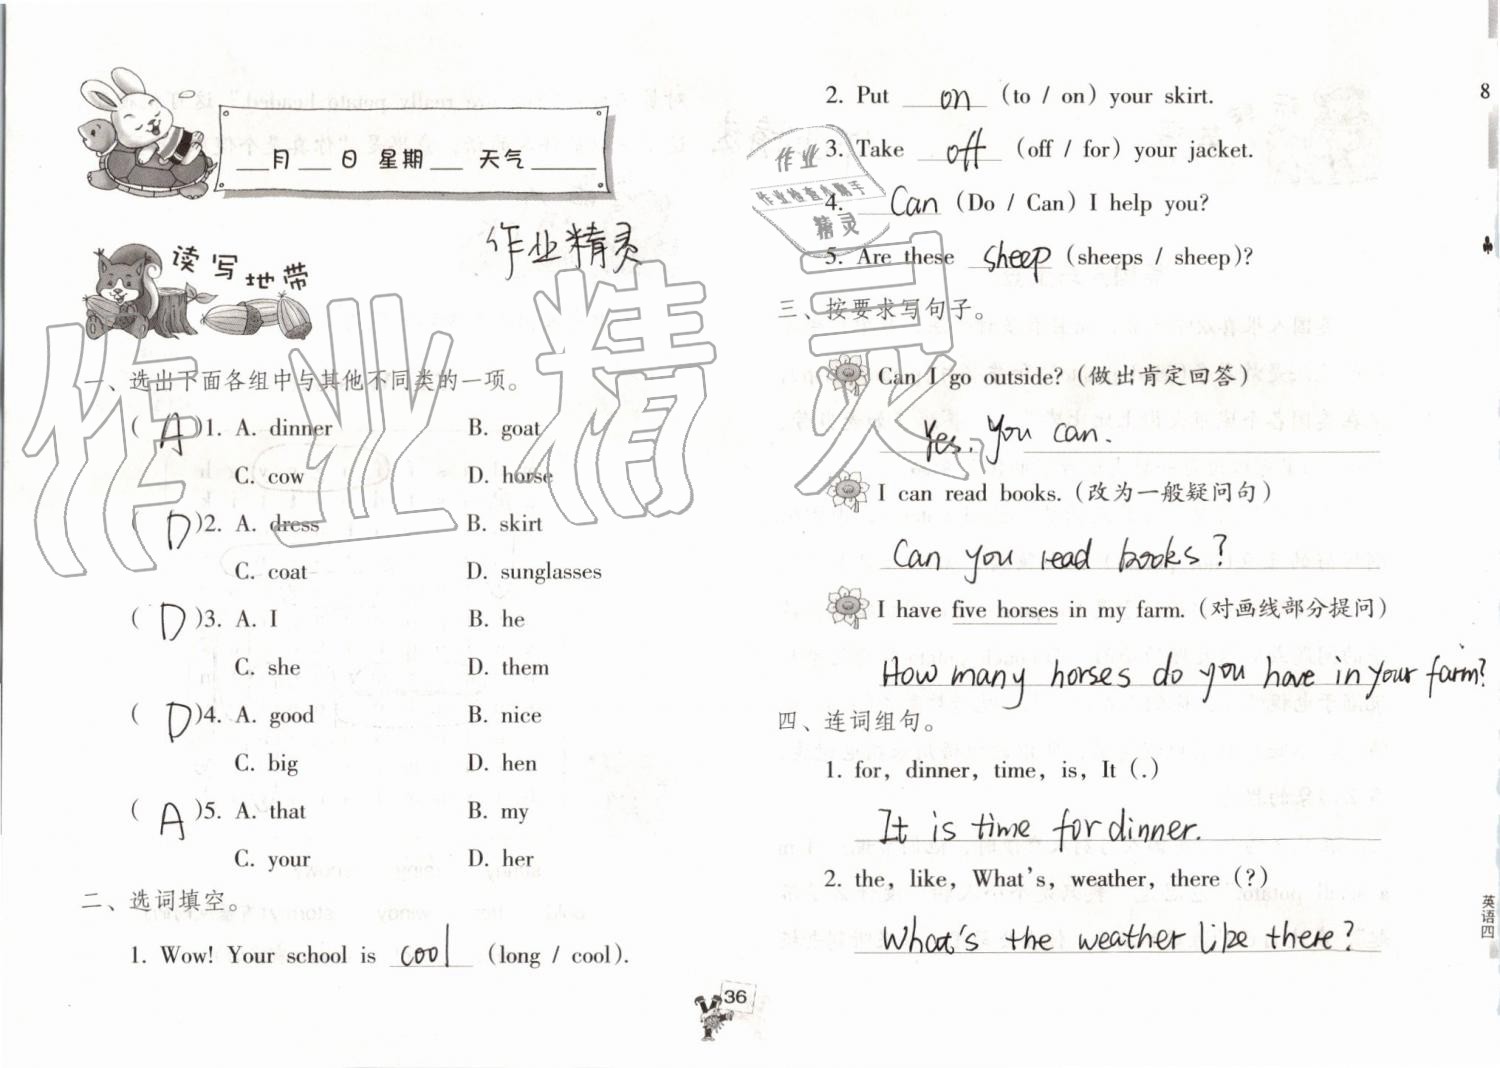 月 日 星期 天气
读写地带
作业精灵
一、选出下面各组中与其他不同类的一项。
( A )1. A. dinner B. goat
C. cow D. horse
( D )2. A. dress B. skirt
C. coat D. sunglasses
( D )3. A. I B. he
C. she D. them
( D )4. A. good B. nice
C. big D. hen
( A )5. A. that B. my
C. your D. her
二、选词填空。
1. Wow! Your school is cool (long / cool).
36
2. Put on (to / on) your skirt.
3. Take off (off / for) your jacket.
4. Can (Do / Can) I help you?
5. Are these sheep (sheeps / sheep)?
作业
作业检查小助手
精灵
三、按要求写句子。
Can I go outside? (做出肯定回答)
Yes, you can.
I can read books. (改为一般疑问句)
Can you read books?
I have five horses in my farm. (对画线部分提问)
How many horses do you have in your farm?
四、连词组句。
1. for, dinner, time, is, It (.)
It is time for dinner.
2. the, like, What's, weather, there (?)
What's the weather like there?
作业精灵
8
英语四